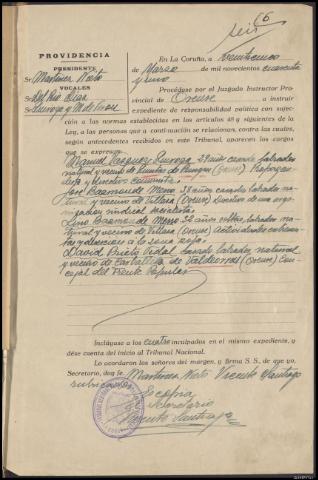 seis 6
PROVIDENCIA
PRESIDENTE
Sr. Martínez Nieto
VOCALES
Sr. del Rio Diaz
Quiroga y
En La Coruña, a veinticinco
de Marzo de mil novecientos cuarenta
y uno
Procédase por el Juzgado Instructor Pro-
vincial de Orense a instruir
expediente de responsabilidad política con suje-
ción a las normas establecidas en los artículos 48 y siguientes de la
Ley, a las personas que a continuación se relacionan, contra las cuales,
según antecedentes recibidos en este Tribunal, aparecen los cargos
que se expresan:
Miguel Vazquez Quiroga 29 años casado labrador
natural y vecino de (Orense)
y directivo comunista
José Baamonde 38 años casado labrador na-
tural y vecino de Villara (Orense) Directivo de una orga-
nización sindical socialista
Lino Baamonde 32 años soltero labrador na-
tural y vecino de Villara (Orense) Actividades extremis-
tas y desercion a la zona roja
David Prieto Vidal casado labrador natural
y vecino de de Valdeorras (Orense) Con-
cejal del Frente Popular
Inclúyase a los cuatro inculpados en el mismo expediente, y
dése cuenta del inicio al Tribunal Nacional.
Lo acordaron los señores del margen, y firma S. S., de que yo,
Secretario, doy fe. Martínez Nieto Vicente Santiago
Es copia
Secretario
Vicente Santiago